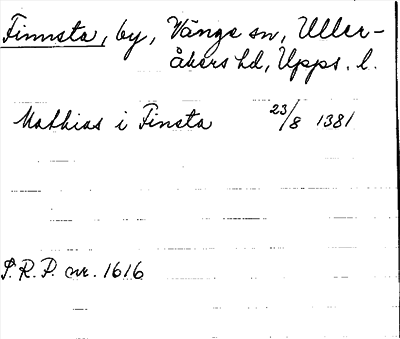 Finnsta, by, Vänge sn, Uller-
åkers hd, Upps. l.
Mathias i Finsta 23/8 1381
S.R.P. nr. 1616